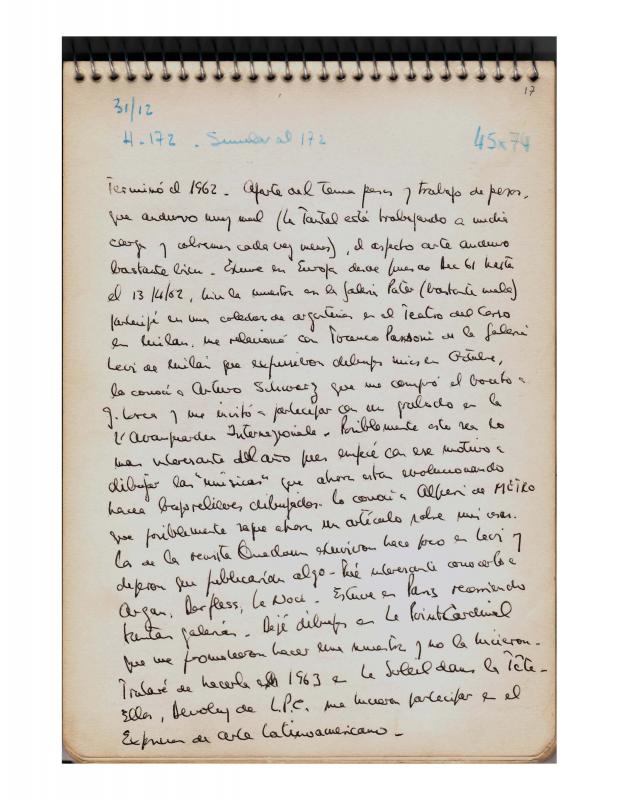 17
31/12
H-172 - Similar al 172 45x74
Terminó el 1962 - Aparte del tema pesos y trabajo de pesos,
que anduvo muy mal (la Tantal está trabajando a media
carga y cobramos cada vez menos), el aspecto arte anduvo
bastante bien - Estuve en Europa desde fines de Dic 61 hasta
el 13/4/62, hice la muestra en la Galeria Pater (bastante mala)
participé en una colectiva de argentinos en el Teatro del Corso
en Milán, me relacioné con Franco Passoni de la Galeria
Levi de Milán que expusieron dibujos mios en Octubre,
lo conocí a Arturo Schwarz que me compró el boceto a
G. Lorca y me invitó a participar con un grabado en la
L'Avanguardia Internazionale - Posiblemente esto sea lo
mas interesante del año pues empecé con ese motivo a
dibujar las "músicas" que ahora estan evolucionando
hacia bajorelieves dibujados. Lo conocí a Alfieri de METRO
que posiblemente saque ahora un artículo sobre mis cosas.
La de la revista estuvieron hace poco en Levi y
dijeron que publicarían algo - Fué interesante conocerlo a
Argan, Dorfless, Le Noci - Estuve en Paris recorriendo
tantas galerías - Dejé dibujos en Le Point Cardinal
que me prometieron hacer una muestra y no la hicieron -
Trataré de hacerla en 1963 en Le Soleil dans la Tête -
Ellos, de L.P.C. me hicieron participar en el
de arte Latinoamericano -